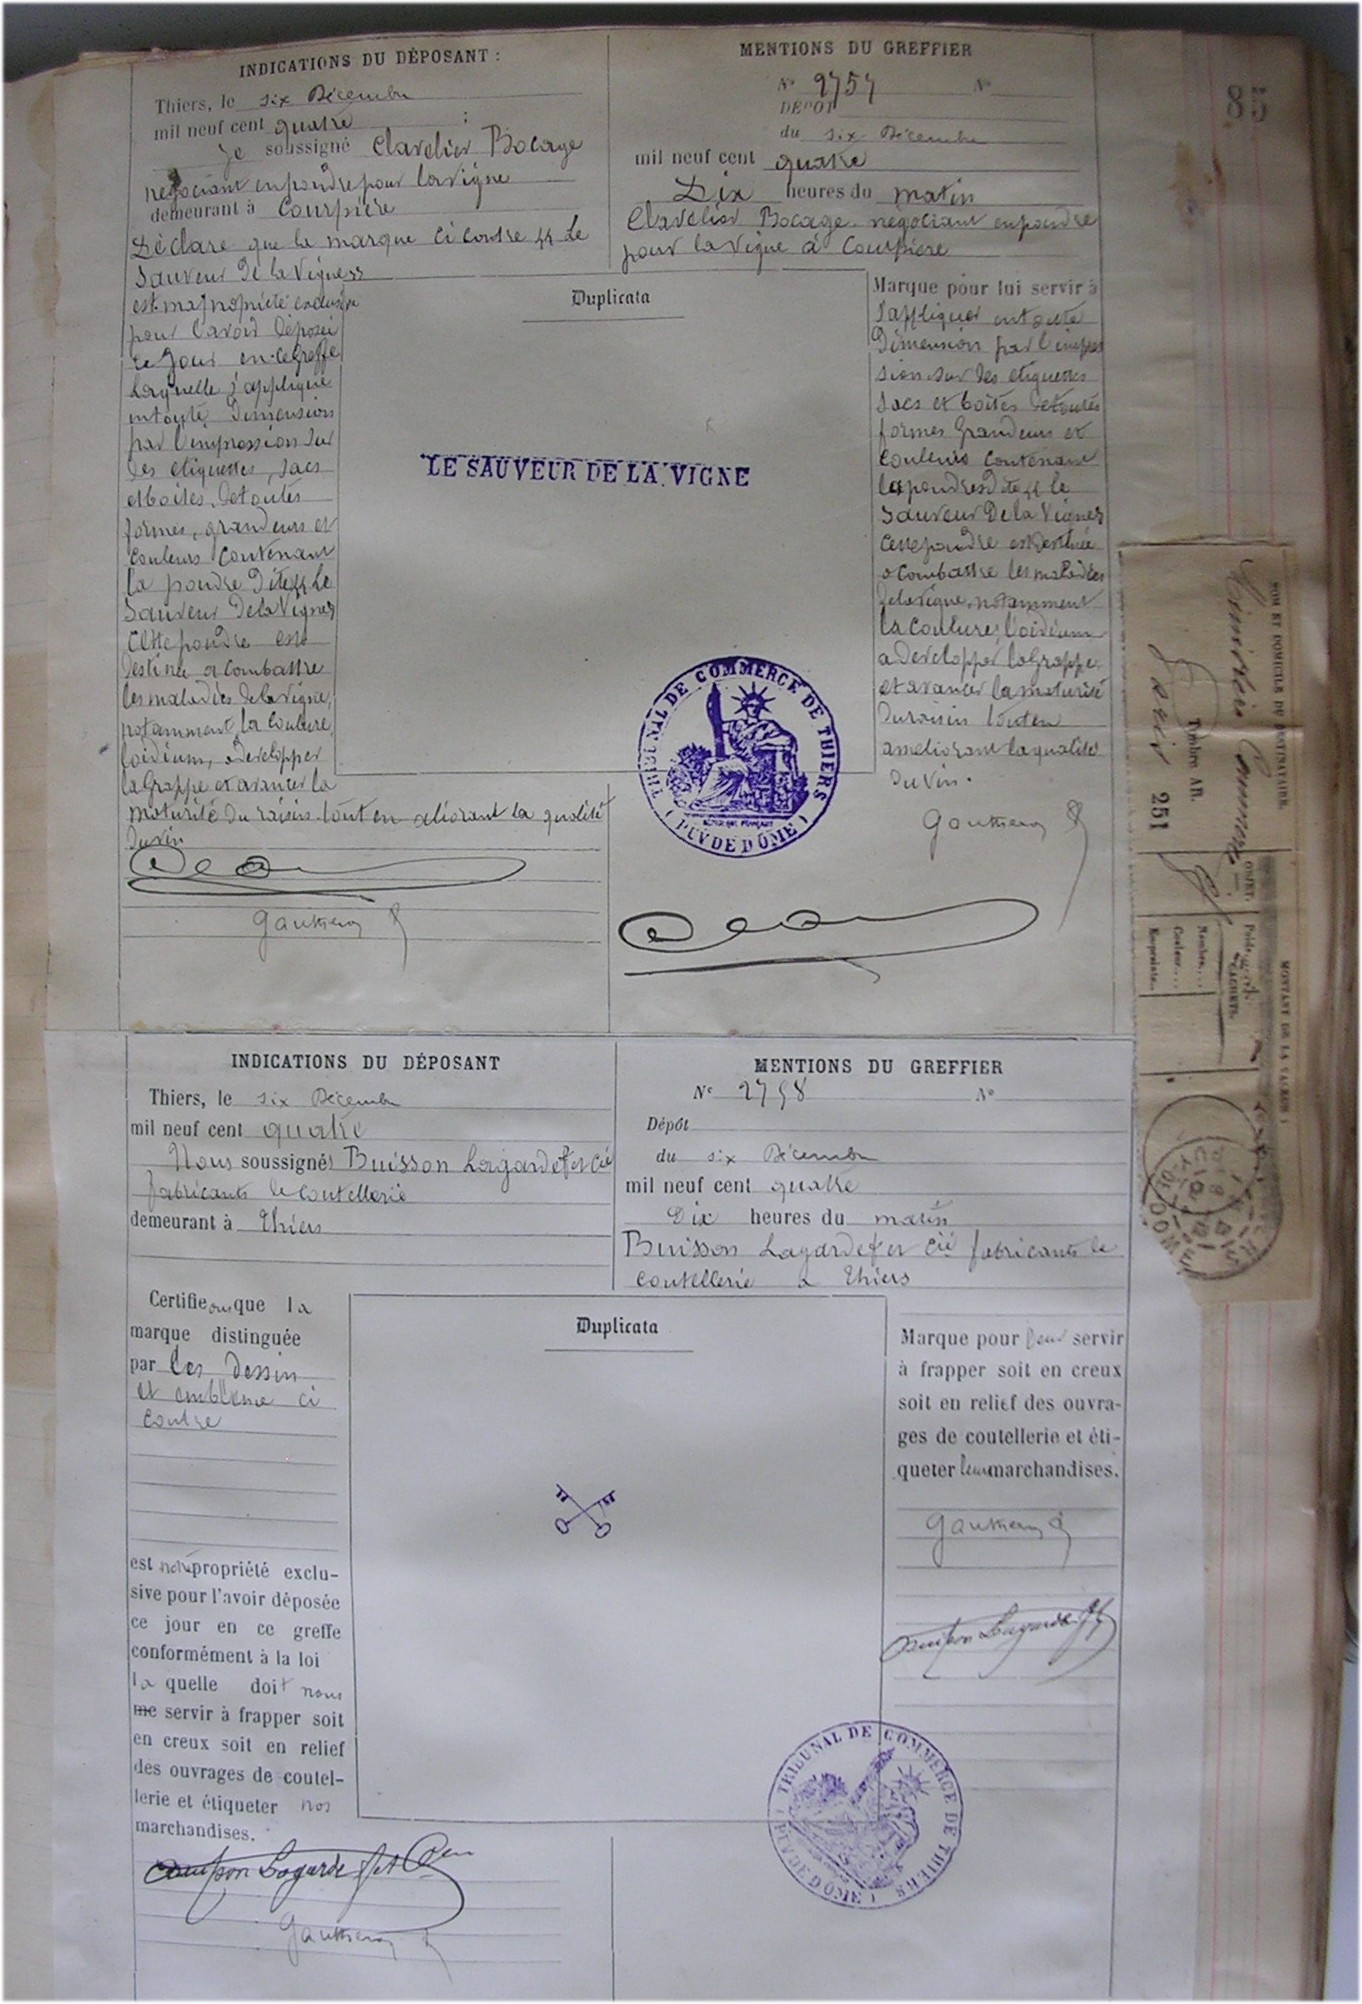 85
INDICATIONS DU DÉPOSANT :
Thiers, le six Décembre
mil neuf cent quatre
je soussigné Clavelier Bocage
négociant en poudre pour la vigne
demeurant à Courpière
Déclare que la marque ci contre "Le
Sauveur De la Vigne"
est ma propriété exclusive
pour l'avoir déposée
ce jour en ce greffe
laquelle s'applique
en toute Dimension
par l'impression sur
des etiquettes, sacs
et boites, de toutes
formes, grandeurs et
couleurs contenant
la poudre Dite "Le
Sauveur De la Vigne"
Cette poudre est
destinée a combattre
les maladies de la vigne,
notamment la Coulure,
l'oidium, a developper
la Grappe et avancer la
maturité du raisin tout en aliorant la qualité
Du vin
Gautheron
MENTIONS DU GREFFIER
No 2757 No
DÉPOT
du six Décembre
mil neuf cent quatre
Dix heures du matin
Clavelier Bocage négociant en poudre
pour la vigne à Courpière
Duplicata
LE SAUVEUR DE LA VIGNE
Marque pour lui servir à
s'appliquer en toute
Dimension par l'impres
sion sur des etiquettes
sacs et boites de toutes
formes Grandeurs et
couleurs contenant
la poudre Dite "le
Sauveur De la Vigne"
cette poudre est destinée
a combattre les maladies
de la vigne, notamment
la coulure, l'oidium
a developper la Grappe
et avancer la maturité
du raisin tout en
ameliorant la qualité
Du vin.
Gautheron
TRIBUNAL DE COMMERCE DE THIERS
RÉPUBLIQUE FRANÇAISE
( PUY DE DÔME )
INDICATIONS DU DÉPOSANT
Thiers, le six Décembre
mil neuf cent quatre
Nous soussignés Buisson Lagarde f et Cie
fabricants de coutellerie
demeurant à Thiers
Certifions que la
marque distinguée
par les dessin
et emblème ci
contre
est notre propriété exclu-
sive pour l'avoir déposée
ce jour en ce greffe
conformément à la loi
la quelle doit nous
me servir à frapper soit
en creux soit en relief
des ouvrages de coutel-
lerie et étiqueter nos
marchandises.
Buisson Lagarde f et Cie
Gautheron
MENTIONS DU GREFFIER
No 2758 No
Dépôt
du six Décembre
mil neuf cent quatre
Dix heures du matin
Buisson Lagarde f et Cie fabricants de
coutellerie a Thiers
Duplicata
Marque pour leur servir
à frapper soit en creux
soit en relief des ouvra-
ges de coutellerie et éti-
queter leur marchandises.
Gautheron
Buisson Lagarde
TRIBUNAL DE COMMERCE DE THIERS
( PUY DE DÔME )
NOM ET DOMICILE DU DESTINATAIRE.
Ministère Commerce
Paris
Timbre AR.
251
OBJET.
Poids
CACHETS.
Nombre....
Couleur....
Empreinte..
MONTANT DE LA VALEUR